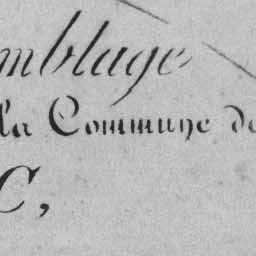 mblage
la Commune de
C,